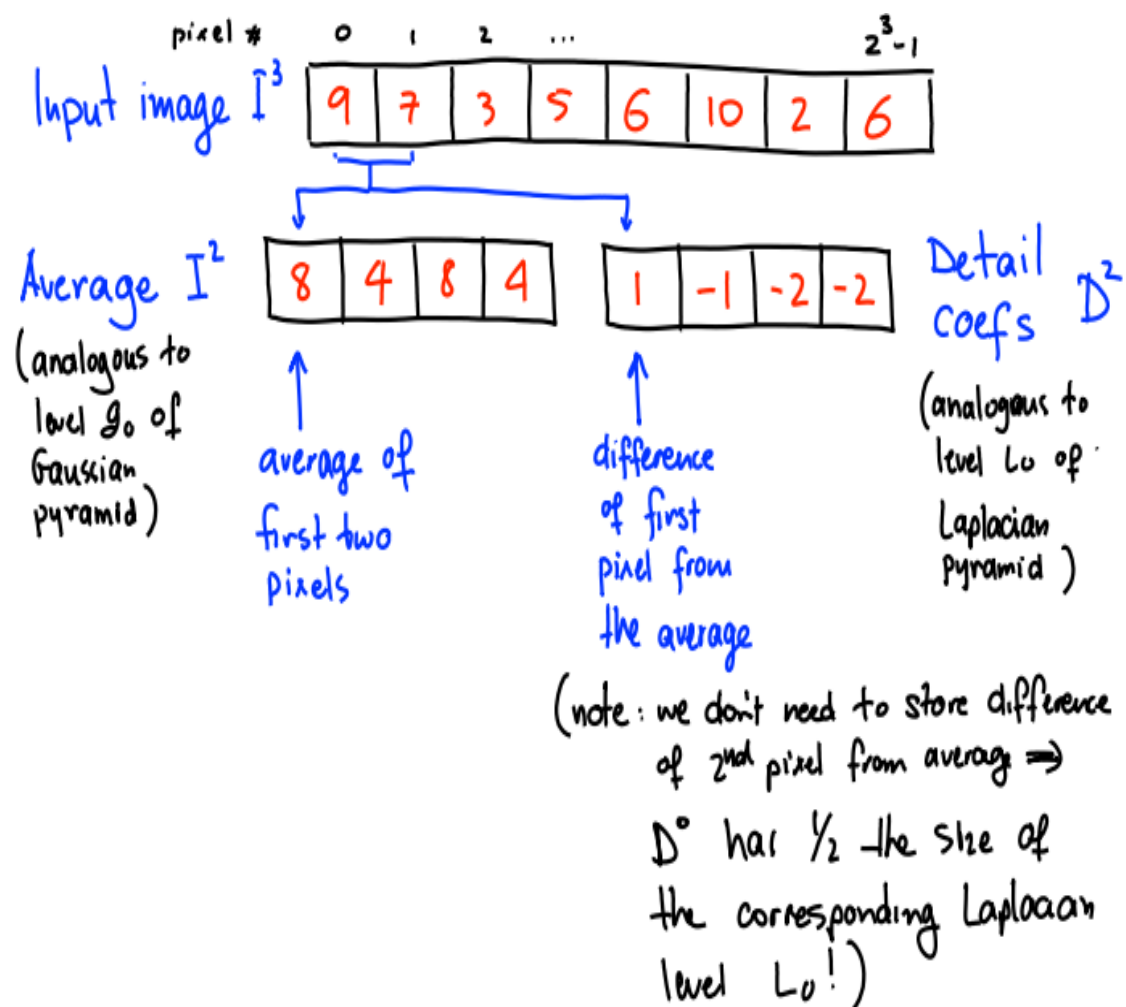 pixel # 0 1 2 ... 2³-1
Input image I³ 9 7 3 5 6 10 2 6
Average I² 8 4 8 4 1 -1 -2 -2 Detail coefs D²
(analogous to
level g₀ of
Gaussian
pyramid)
average of
first two
pixels
difference
of first
pixel from
the average
(analogous to
level L₀ of
Laplacian
pyramid)
(note: we don't need to store difference
of 2nd pixel from average ⇒
D⁰ has 1/2 the size of
the corresponding Laplacian
level L₀!)